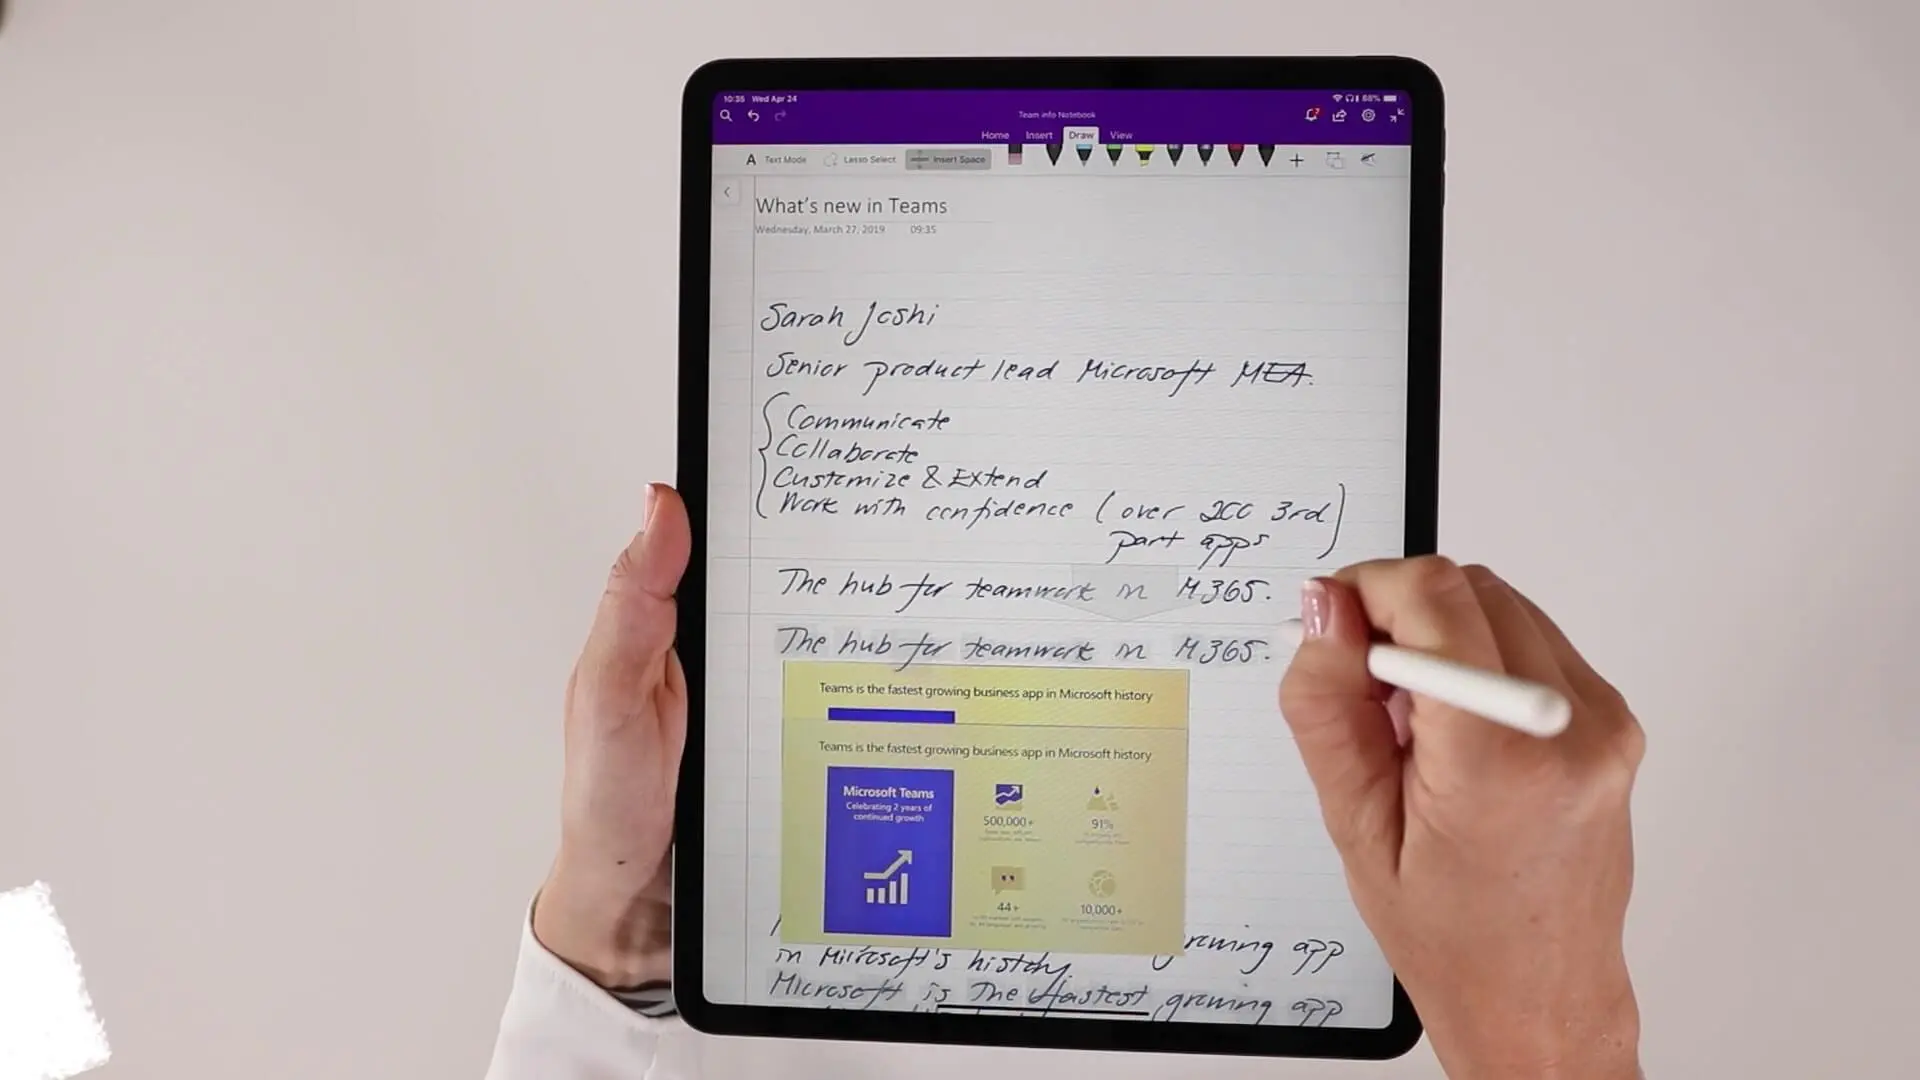 10:35 Wed Apr 24
68%
Team info Notebook
7
Home Insert Draw View
A Text Mode Lasso Select Insert Space
What's new in Teams
Wednesday, March 27, 2019 09:35
Sarah Joshi
Senior product lead Microsoft MEA.
Communicate
Collaborate
Customize & Extend
Work with confidence (over 200 3rd
part apps)
The hub for teamwork in M365.
The hub for teamwork in M365.
Teams is the fastest growing business app in Microsoft history
Teams is the fastest growing business app in Microsoft history
Microsoft Teams
Celebrating 2 years of
continued growth
500,000+
91%
44+
10,000+
growing app
in Microsoft's history
Microsoft is the fastest growing app